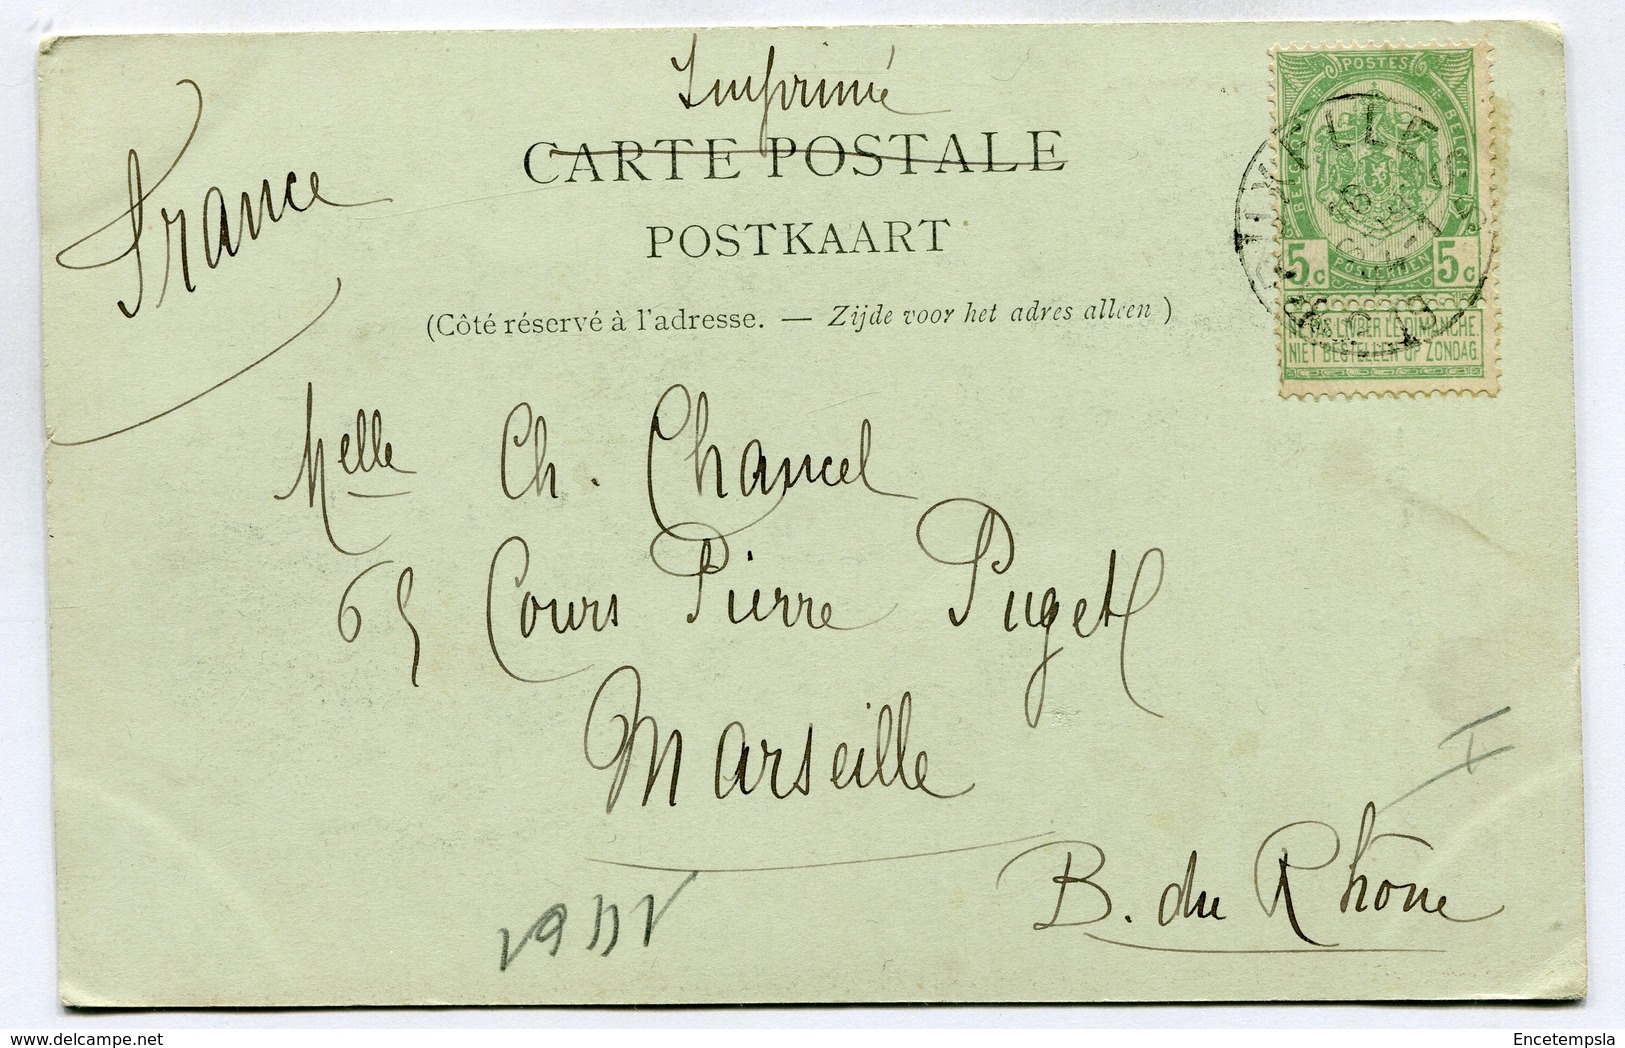 Imprimé
CARTE POSTALE
POSTKAART
(Côté réservé à l'adresse. — Zijde voor het adres alleen)
France
POSTES
BELGIQUE
BELGIE
POSTERIJEN
5c 5c
NE PAS LIVRER LE DIMANCHE.
NIET BESTELLEN OP ZONDAG
Melle Ch. Chancel
65 Cours Pierre Puget
Marseille
B. du Rhône
I
delcampe.net
Encetempsla